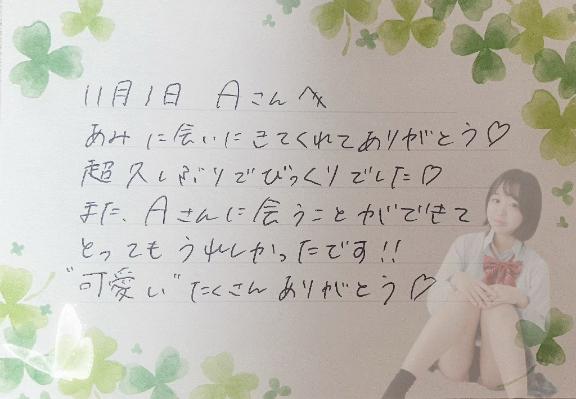 11月1日 Aさんへ
あみに会いにきてくれてありがとう♡
超久しぶりでびっくりでした♡
また、Aさんに会うことができて
とってもうれしかったです!!
"可愛い"たくさんありがとう♡